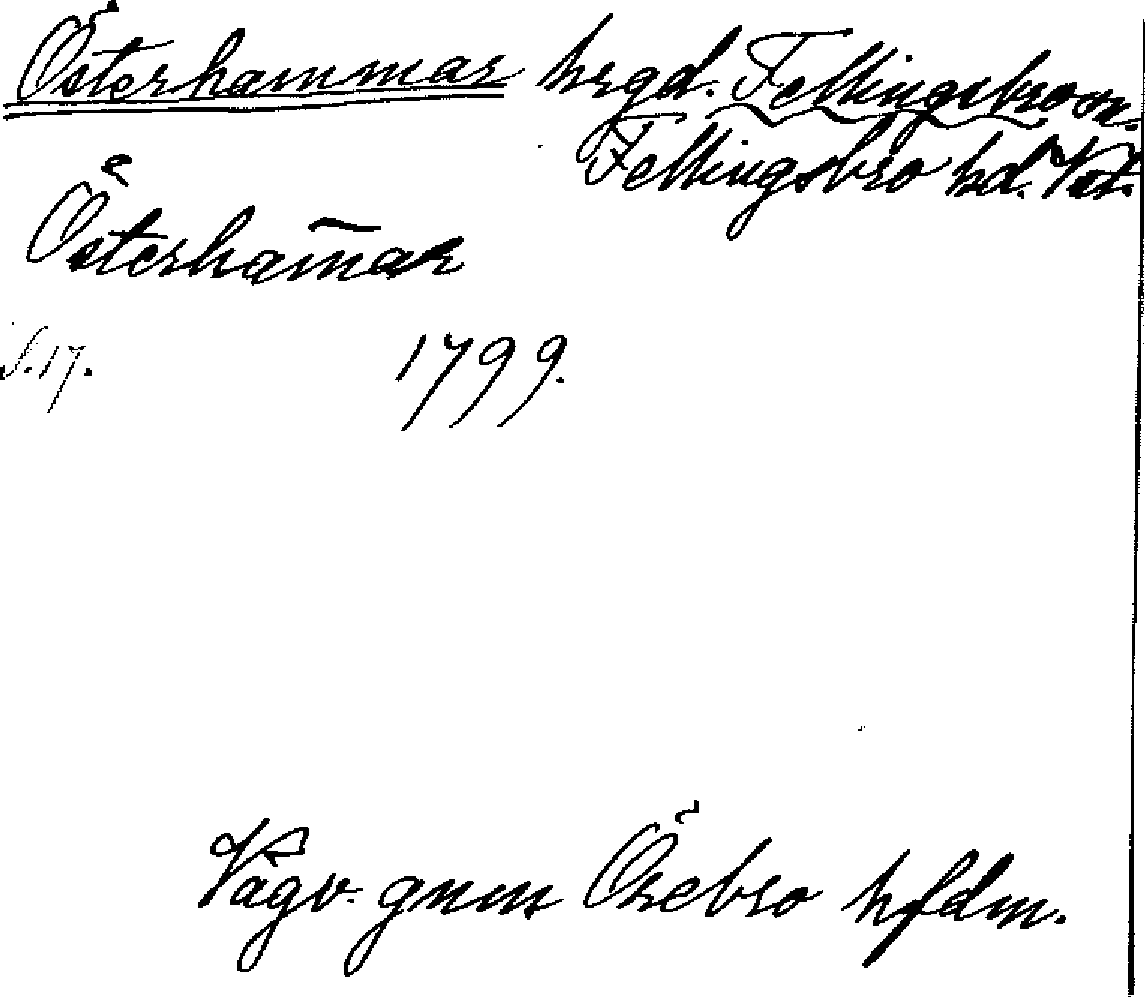 Österhammar hrgd. Fellingsbro sn.
Fellingsbro hd. Vstm.
Österham̄ar
S. 17. 1799.
Vägv. gnm Örebro hfdm.